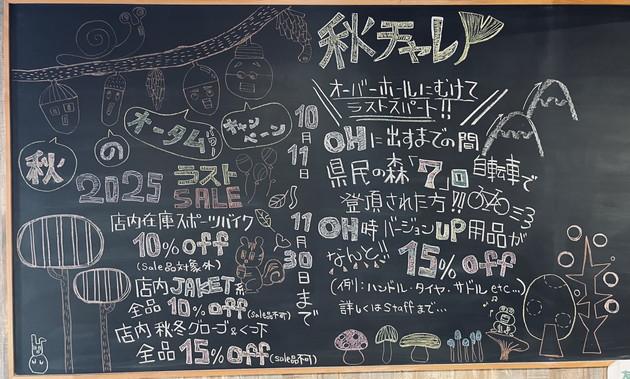 秋
の
オータムリー
キャンペーン
2025 ラスト
SALE
店内在庫スポーツバイク
10%off
(Sale品対象外)
店内JAKET系
全品10%off(Sale品不可)
店内 秋冬グローブ&くつ下
全品15%off(sale品不可)
10月11日
11月30日まで
秋チャレ
オーバーホールにむけて
ラストスパート!!
OHに出すまでの間
県民の森「7」回 自転車で
登頂された方!!
OH時バージョンUP用品が
なんと!! 15%off
(例:ハンドル・タイヤ・サドル etc...)
詳しくはStaffまで...